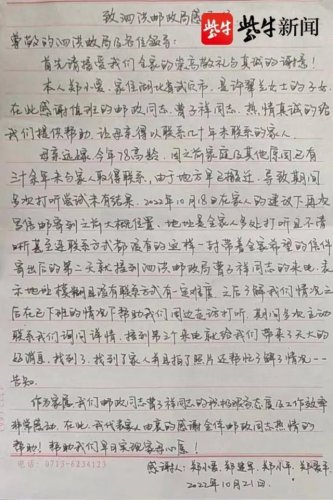 致泗洪邮政局感
紫牛新闻
尊敬的泗洪邮政局及各位领导:
首先请接受我们全家的崇高敬礼与真诚的谢意!
本人郑小曼,家住湖北省武汉市,是许翠兰女士的子女,
在此感谢值班的邮政同志曹子祥同志,热情真诚的给
我们提供帮助,让母亲得以联系几十年未联系的家人。
母亲远嫁,今年78高龄,因之前家庭及其他原因已有
三十余年未与家人取得联系,由于地方早已搬迁,导致期间
多次打听尝试未有结果。2022年10月18日在家人的建议下再次
写信邮寄到之前大概位置,地址是全家多处打听且不清
晰甚至连联系方式都没有的这样一封带着全家希望的信件
寄出后的第二天就接到泗洪邮政局曹子祥同志的来电,表
示地址模糊且没有联系方式有一定难度,之后了解我们情况之
后在已下班的情况下帮助我们周边走访打听,期间多次主动
联系我们询问详情,接到第三个来电就给我们带来了天大的
好消息,找到了,找到了家人并且拍了照片还帮忙了解了情况一一
告知。
作为家属我们邮政同志曹子祥同志的积极服务态度及工作效率
非常感动,在此,我代表家人由衷的感谢全体邮政同志热情的
帮助!帮助我们早日实现家母心愿!
感谢人:郑小曼、郑建军、郑小平、郑爱军
2022年10月21日.
电话:0713-6234125